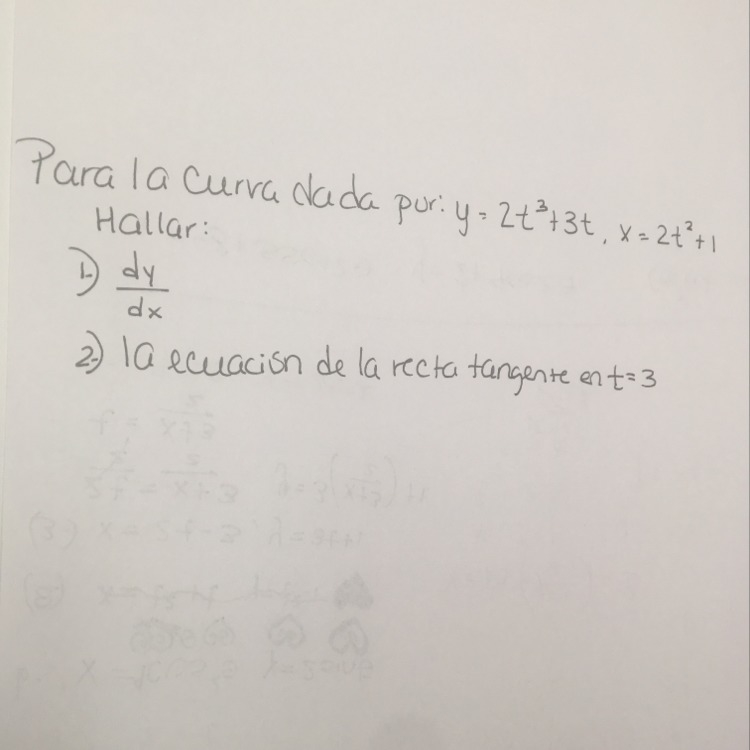 Para la curva dada por: y = 2t³+3t, x = 2t²+1
Hallar:
1.) dy/dx
2.) la ecuación de la recta tangente en t=3